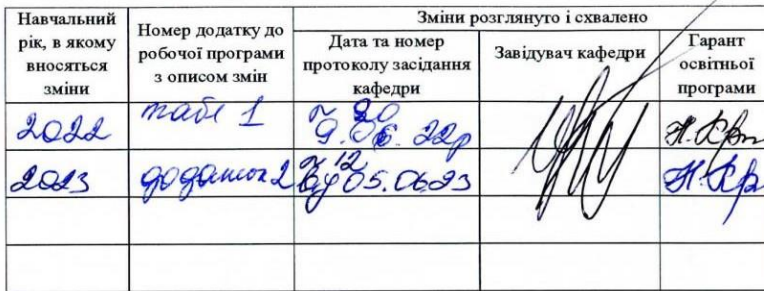 Навчальний рік, в якому вносяться зміни
Номер додатку до робочої програми з описом змін
Зміни розглянуто і схвалено
Дата та номер протоколу засідання кафедри
Завідувач кафедри
Гарант освітньої програми
2022
табл 1
20
9.06.22р
2023
додаток 2
12
05.06.23